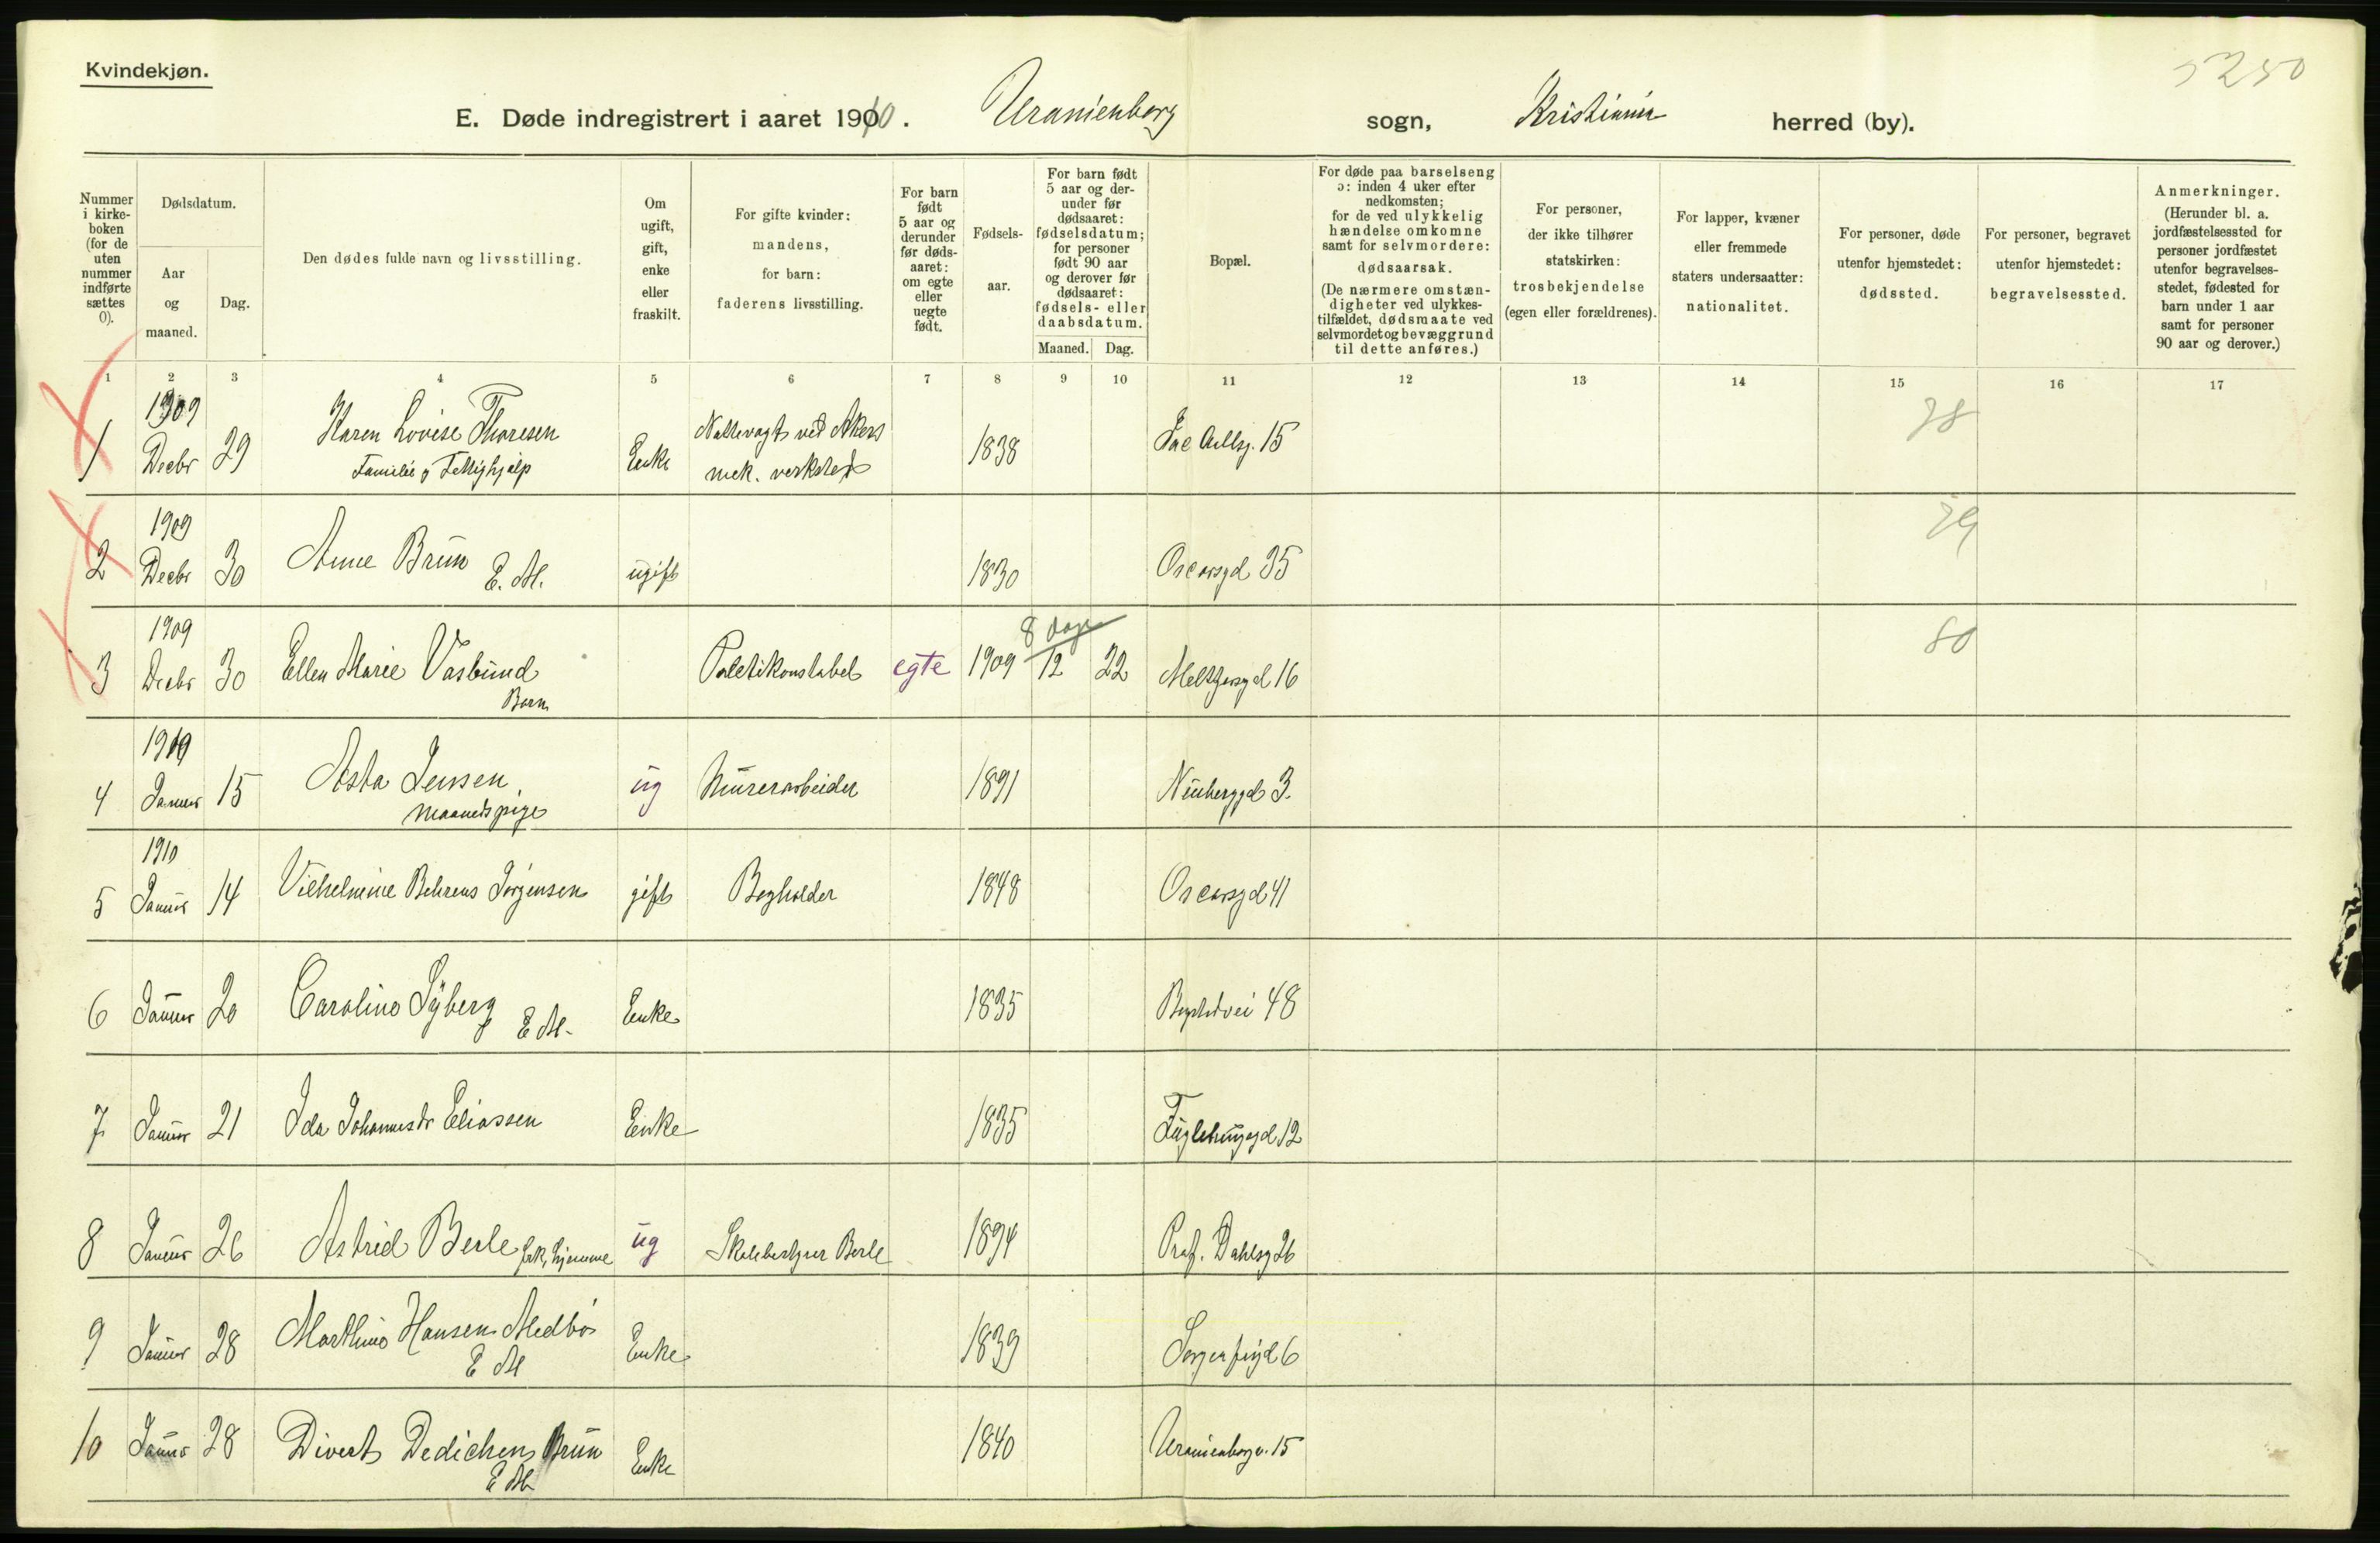 Kvindekjøn.
5250
E. Døde indregistrert i aaret 1910. Uranienborg sogn, Kristiania herred (by).
Nummer i kirkeboken (for de uten nummer indførte sættes 0).
Dødsdatum.
Aar og maaned.
Dag.
Den dødes fulde navn og livsstilling.
Om ugift, gift, enke eller fraskilt.
For gifte kvinder: mandens, for barn: faderens livsstilling.
For barn født 5 aar og derunder før dødsaaret: om egte eller uegte født.
Fødselsaar.
For barn født 5 aar og derunder før dødsaaret: fødselsdatum; for personer født 90 aar og derover før dødsaaret: fødsels- eller daabsdatum.
Maaned. Dag.
Bopæl.
For døde paa barselseng ɔ: inden 4 uker efter nedkomsten; for de ved ulykkelig hændelse omkomne samt for selvmordere: dødsaarsak. (De nærmere omstændigheter ved ulykkestilfældet, dødsmaate ved selvmordet og bevæggrund til dette anføres.)
For personer, der ikke tilhører statskirken: trosbekjendelse (egen eller forældrenes).
For lapper, kvæner eller fremmede staters undersaatter: nationalitet.
For personer, døde utenfor hjemstedet: dødssted.
For personer, begravet utenfor hjemstedet: begravelsessted.
Anmerkninger. (Herunder bl. a. jordfæstelsessted for personer jordfæstet utenfor begravelsesstedet, fødested for barn under 1 aar samt for personer 90 aar og derover.)
1 2 3 4 5 6 7 8 9 10 11 12 13 14 15 16 17
1 1909 Decbr 29 Karen Lovise Thoresen Familie og Fattighjælp Enke Nattevagt ved Akers mek. verksted 1838 15 78
2 1909 Decbr 30 Anne Brun E. M. ugift 1830 Oscarsgd 35 79
3 1909 Decbr 30 Ellen Marie Vasbund Barn Politikonstabel egte 1909 8 dage 12 22 Meltzersgd 16 80
4 1910 Januar 15 Asta Jensen Maanedspige ug Murerarbeider 1891 Niuberggd 3.
5 1910 Januar 14 Vilhelmine Behrens Jørgensen gift Bogholder 1848 Oscarsgd 41
6 Januar 20 Caroline Syberg E M. Enke 1835 Bogstadvei 48
7 Januar 21 Ida Johannesdr Eliassen Enke 1835 Fuglehauggd 12
8 Januar 26 Astrid Berle frk, hjemme ug Skolebestyrer Berle 1894 Prof. Dahlsg 26
9 Januar 28 Marthine Hansen Medbö E M Enke 1839 Sorgenfrigd 6
10 Januar 28 Divert Dedichen Brun E M Enke 1840 Uranienborgv. 15